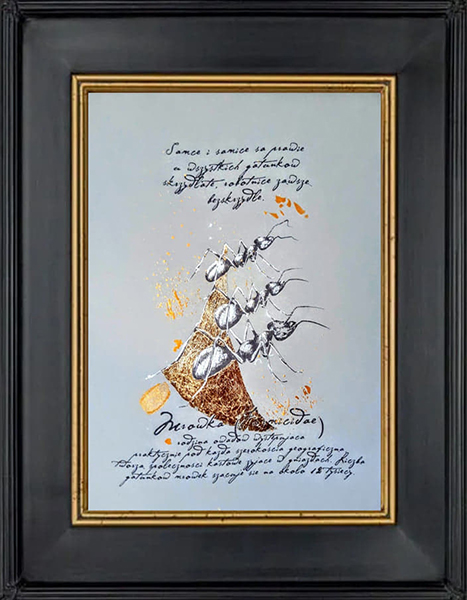 Samce i samice są prawie
u wszystkich gatunków
skrzydlate, robotnice zawsze
bezskrzydłe.
Mrówka (Formicidae)
rodzina owadów występująca
praktycznie pod każdą szerokością geograficzną
Tworzą społeczności kastowe żyjące w gniazdach. Liczba
gatunków mrówek szacuje się na około 12 tysięcy